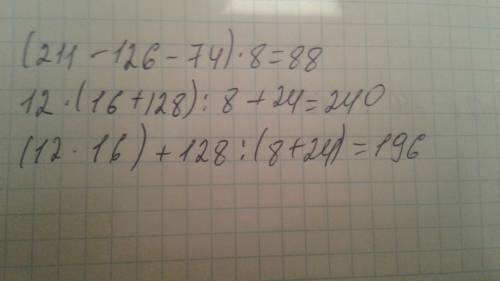 (211 - 126 - 74) · 8 = 88
12 · (16 + 128) : 8 + 24 = 240
(12 · 16) + 128 : (8 + 24) = 196